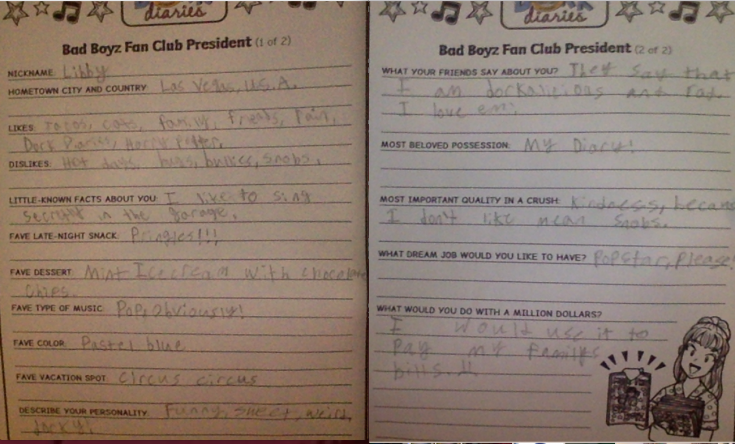 diaries
Bad Boyz Fan Club President (1 of 2)
NICKNAME: Libby
HOMETOWN CITY AND COUNTRY: Las Vegas, U.S.A.
LIKES: Tacos, cats, family, friends, rain,
Dork Diaries, Harry Potter.
DISLIKES: Hot days, bugs, bullies, snobs.
LITTLE-KNOWN FACTS ABOUT YOU: I like to sing
secretly in the garage.
FAVE LATE-NIGHT SNACK: Pringles!!!
FAVE DESSERT: Mint Icecream with chocolate
chips.
FAVE TYPE OF MUSIC: Pop, Obviously!
FAVE COLOR: Pastel blue
FAVE VACATION SPOT: Circus circus
DESCRIBE YOUR PERSONALITY: Funny, sweet, weird,
dorky!
diaries
Bad Boyz Fan Club President (2 of 2)
WHAT YOUR FRIENDS SAY ABOUT YOU? They say that
I am dorkalicious and rad.
I love em!
MOST BELOVED POSSESSION: My Diary!
MOST IMPORTANT QUALITY IN A CRUSH: Kindness, becaus
I don't like mean snobs.
WHAT DREAM JOB WOULD YOU LIKE TO HAVE? Popstar, please!
WHAT WOULD YOU DO WITH A MILLION DOLLARS?
I would use it to
pay my familys
bills.!!